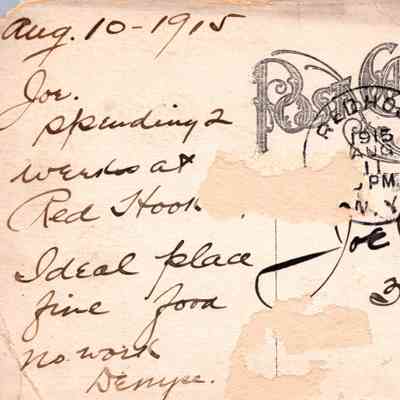 Aug. 10-1915
Joe.
Spending 2
weeks at
Red Hook
Ideal place
fine food
no work
Post Ca
RED HOO
1915
AUG
11
PM
N.Y.
Joe
3